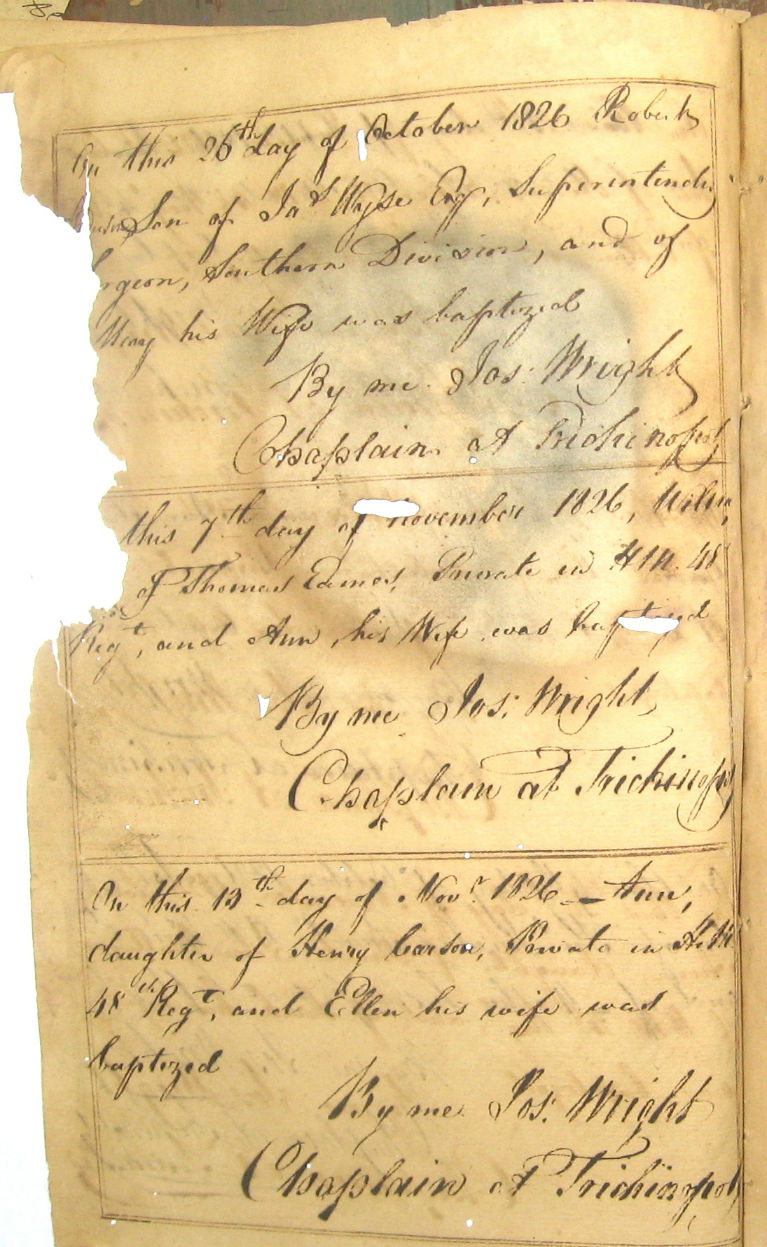 On this 26th day of October 1826 Robert
Son of Jas Wyse Esqr, Superintendg
rgeon, Southern Division, and of
Mary his Wife was baptized
By me Jos: Wright
Chaplain at Trichinopoly
this 7th day of November 1826,
of Thomas Eames, Private in H.M. 48
Regt, and Ann, his Wife was baptized
By me Jos: Wright
Chaplain at Trichinopoly
On this 13th day of Novr 1826 — Ann,
daughter of Henry Carson, Private in H.M
48th Regt, and Ellen his wife was
baptized
By me Jos: Wright
Chaplain at Trichinopoly